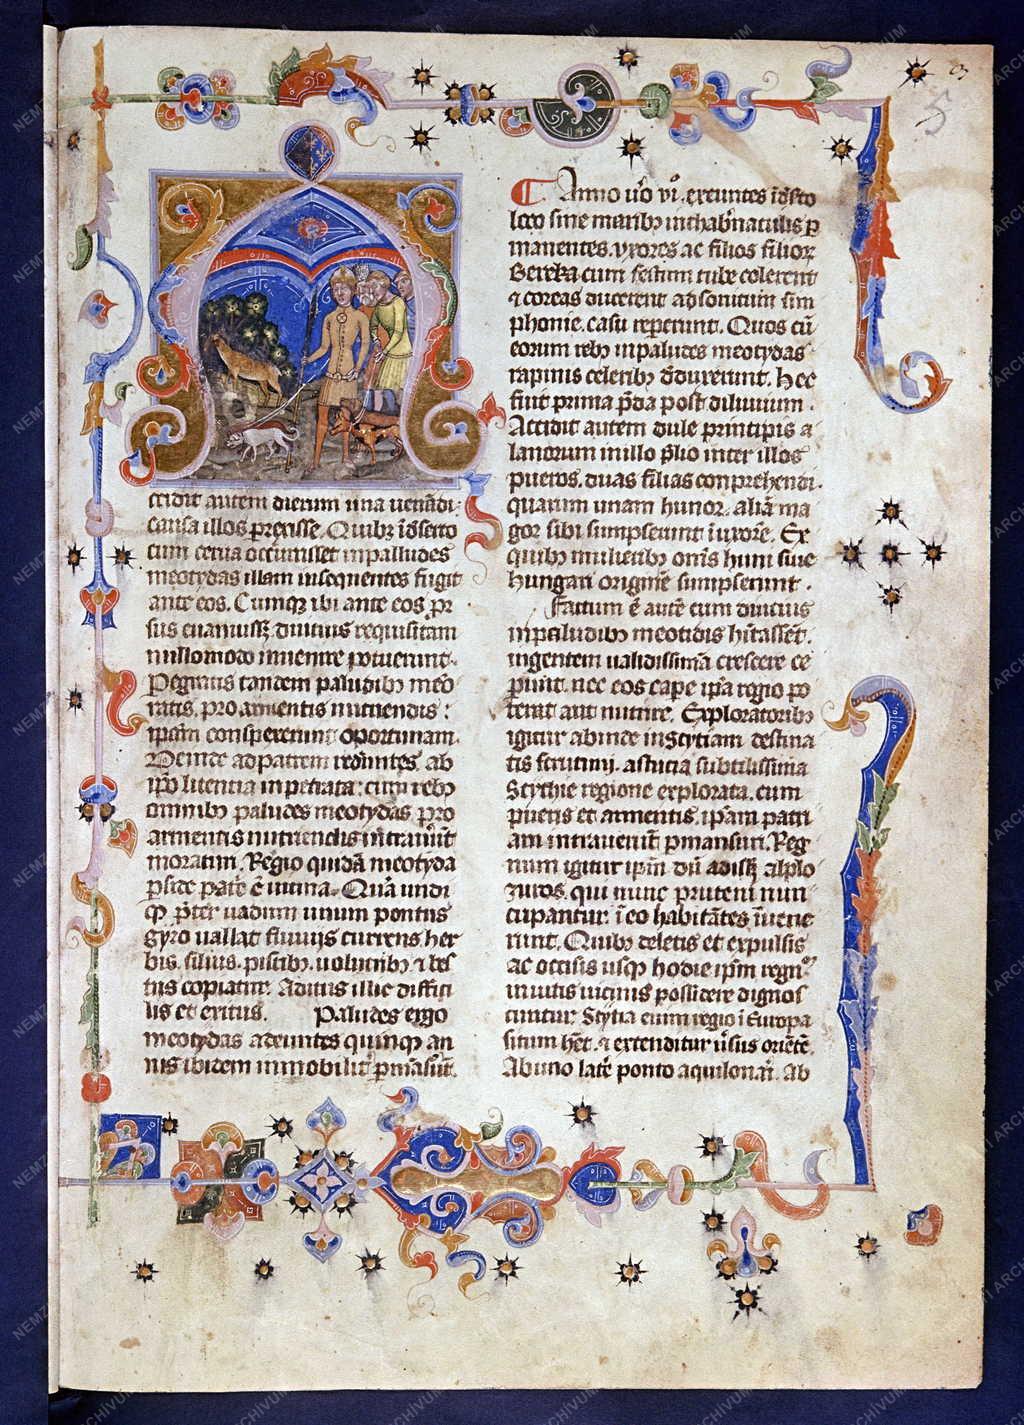 ccidit autem dierum una uenādi
causa illos perexisse. Quibꝫ ī dẜerto
cum cerua occurrisset in palludes
meotydas illam insequentes fugit
ante eos. Cumqꝫ ibi ante eos pr̄
sus euanuissꝫ. diutius requisitam
nullo modo inuenire potuerunt.
Pegratis tandem paludibꝫ meo
ratis. pro armentis nutriendis :
ip̄am conspexerunt oportunam.
Deinde ad patrem redeūtes. ab
ip̄o licentia inpetrata: cum rebꝫ
omnibꝫ paludes meotydas pro
armentis nutriendis intrauerūt
moraturi. Regio quidā meotyda
pside patr̄e ē uicina. Quā undi
qꝫ pr̄ter uadum unum pontus
gyro uallat. fluuijs currens. her
bis. siluis. piscibꝫ. uolucribꝫ ⁊ bes
tiis copiatur. Aditus illic diffici
lis et exitus. Paludes ergo
meotydas adeuntes quinqꝫ an
nis ibidem immobilit̄ p̱māsūt.
Anno u̾o vi͛. exeuntes ī dẜerto
loco sine maribꝫ in thab̾naculis p̱
manentes. vxores ac filios filioꝝ
Bereka cum festum tube colerent
⁊ coreas ducerent ad sonitum sim
phonie. casu reperunt. Quos cū
eorum rebꝫ in paludes meotydas
rapinis celeribꝫ d̾duxerunt. Hec
fuit prima p̄da post diluuium.
Accidit autem dule principis a
lanorum in illo p̄lio inter illos
pueros. duas filias conprehendi.
quarum unam hunor. aliā ma
gor sibi sumpserunt ī uxorē. Ex
quibꝫ mulieribꝫ om̄s huni siue
hungari originē sumpserunt.
Factum ē autē cum diucius
in paludibꝫ meotidis h̾itassēt.
in gentem ualidissimā crescere ce
perunt. nec eos cape ip̄a regio po
terat aut nutrire. Exploratoribꝫ
igitur abinde in Scytiam destina
tis scrutinij. astucia subtilissima
Scythie regione explorata. cum
pueris et armentis. ip̄am patri
am intrauerūt p̱mansuri. Reg
num igitur ip̄m dū adissꝫ alplo
zuros. qui nunc pruteni nun
cupantur. ī eo habitātes īuene
runt. Quibꝫ deletis et expulsis
ac occisis usqꝫ hodie ip̄m regnū
inuitis uicinis possidere dignos
cuntur. Scytia enim regio ī Europa
situm h̾et. ⁊ extenditur u̾sus oriētē.
Ab uno lat̾e ponto aquilonari. ab